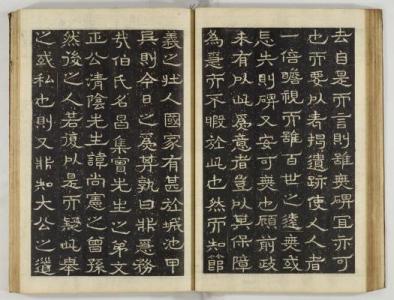 去自是而言則雖無碑宜亦可
也而要以表揭遺跡使人人者
一倍瞻視而雖百世之遠無或
忘失則碑又安可無也顧前政
未有以此爲意者豈以其保障
為意而不暇於此也然而知節
義之壯人國家有甚於城池甲
兵則今日之爲其孰曰非急務
哉伯氏名昌集實先生之弟文
正公清陰先生諱尚憲之曾孫
然後之人若復以是而疑此舉
之或私也則又非知大公之道